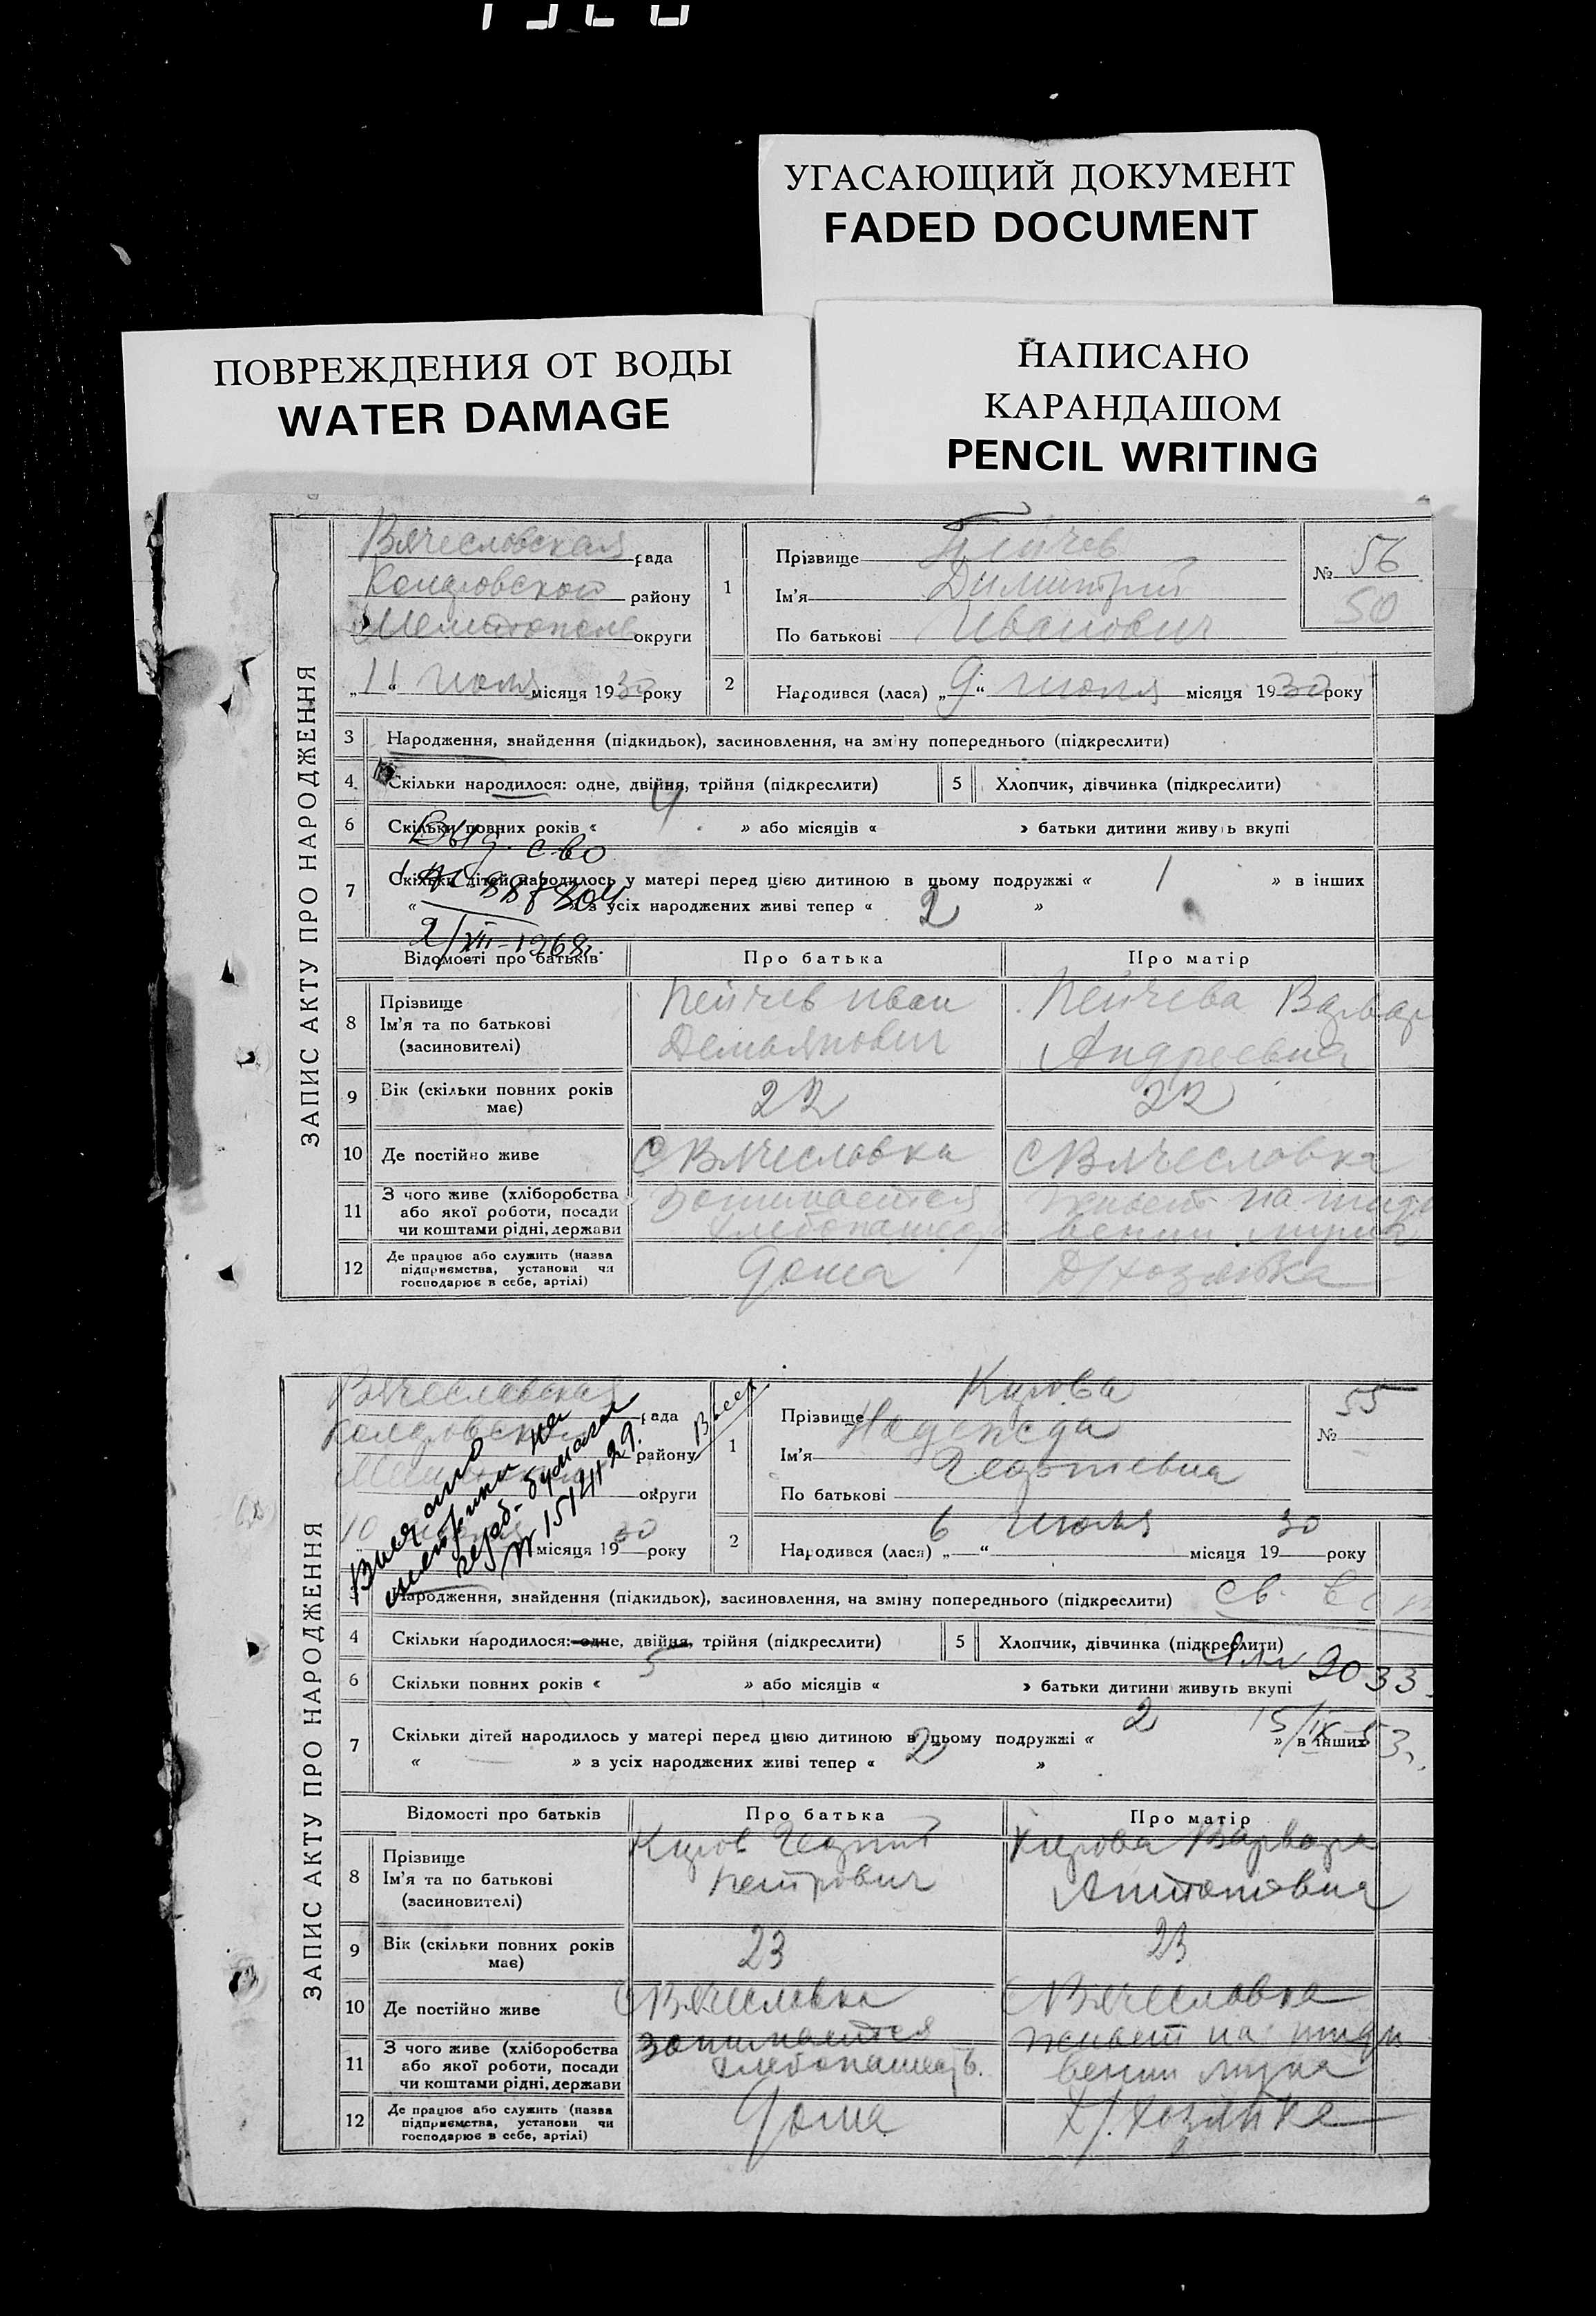 УГАСАЮЩИЙ ДОКУМЕНТ
FADED DOCUMENT
ПОВРЕЖДЕНИЯ ОТ ВОДЫ
WATER DAMAGE
НАПИСАНО
КАРАНДАШОМ
PENCIL WRITING
ЗАПИС АКТУ ПРО НАРОДЖЕННЯ
Вячеславская рада
району
округи
„11“ июля місяця 1930 року
1
Прізвище Пейчев
Ім'я Димитрий
По батькові Иванович
№ 56
50
2
Народився (лася) „9“ июля місяця 1930 року
3 Народження, знайдення (підкидьок), засиновлення, на зміну попереднього (підкреслити)
4 Скільки народилося: одне, двійня, трійня (підкреслити)
5 Хлопчик, дівчинка (підкреслити)
6 Скільки повних років « 4 » або місяців « » батьки дитини живуть вкупі
Выд. с-во
7 Скільки дітей народилось у матері перед цією дитиною в цьому подружжі « 1 » в інших
« » з усіх народжених живі тепер « 2 »
2/VII-1968г.
Відомості про батьків Про батька Про матір
8 Прізвище
Ім'я та по батькові
(засиновителі)
Пейчев Иван
Демьянович
Пейчева Варвар
Андреевна
9 Вік (скільки повних років
має)
22 22
10 Де постійно живе С Вячесловка С Вячесловка
11 З чого живе (хліборобства
або якої роботи, посади
чи коштами рідні, держави
Занимается
хлебопашес
живет на ижди
вении мужа
12 Де працює або служить (назва
підприємства, установи чи
господарює в себе, артілі)
Дома Д/хозяйка
ЗАПИС АКТУ ПРО НАРОДЖЕННЯ
Вячеславская рада
району
округи
10 місяця 1930 року
Выдано
метрики на
герб. бумаге
№ 1514129.
1
Прізвище Кирова
Ім'я Надежда
По батькові Георгиевна
№ 55
2
Народився (лася) „6“ июля місяця 1930 року
3 Народження, знайдення (підкидьок), засиновлення, на зміну попереднього (підкреслити)
Св.
4 Скільки народилося: одне, двійня, трійня (підкреслити)
5 Хлопчик, дівчинка (підкреслити)
6 Скільки повних років « 5 » або місяців « » батьки дитини живуть вкупі
2033
7 Скільки дітей народилось у матері перед цією дитиною в цьому подружжі « 2 » в інших
15/IX-53г.
« — » з усіх народжених живі тепер « 2 »
Відомості про батьків Про батька Про матір
8 Прізвище
Ім'я та по батькові
(засиновителі)
Киров Георгий
Петрович
Кирова Варвара
Антоновна
9 Вік (скільки повних років
має)
23 23
10 Де постійно живе С Вячесловка С Вячесловка
11 З чого живе (хліборобства
або якої роботи, посади
чи коштами рідні, держави
Занимается
хлебопашеств.
живет на ижди
вении мужа
12 Де працює або служить (назва
підприємства, установи чи
господарює в себе, артілі)
Дома Д/хозяйка